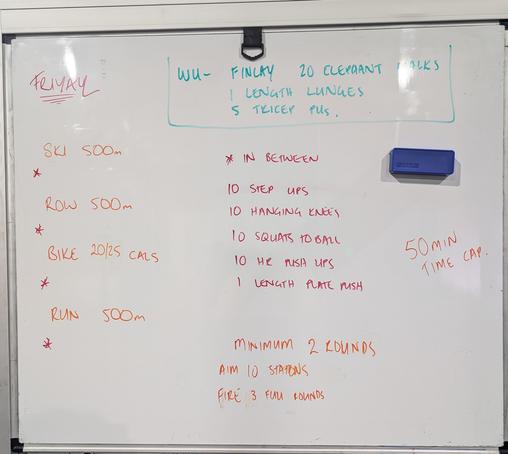 FRIYAY
WU- FINLAY 20 ELEPHANT WALKS
1 LENGTH LUNGES
5 TRICEP PUs.
SKI 500m
*
ROW 500m
*
BIKE 20/25 CALS
*
RUN 500m
*
* IN BETWEEN
10 STEP UPS
10 HANGING KNEES
10 SQUATS TO BALL
10 HR PUSH UPS
1 LENGTH PLATE PUSH
50MIN
TIME CAP.
MINIMUM 2 ROUNDS
AIM 10 STATIONS
FIRE 3 FULL ROUNDS